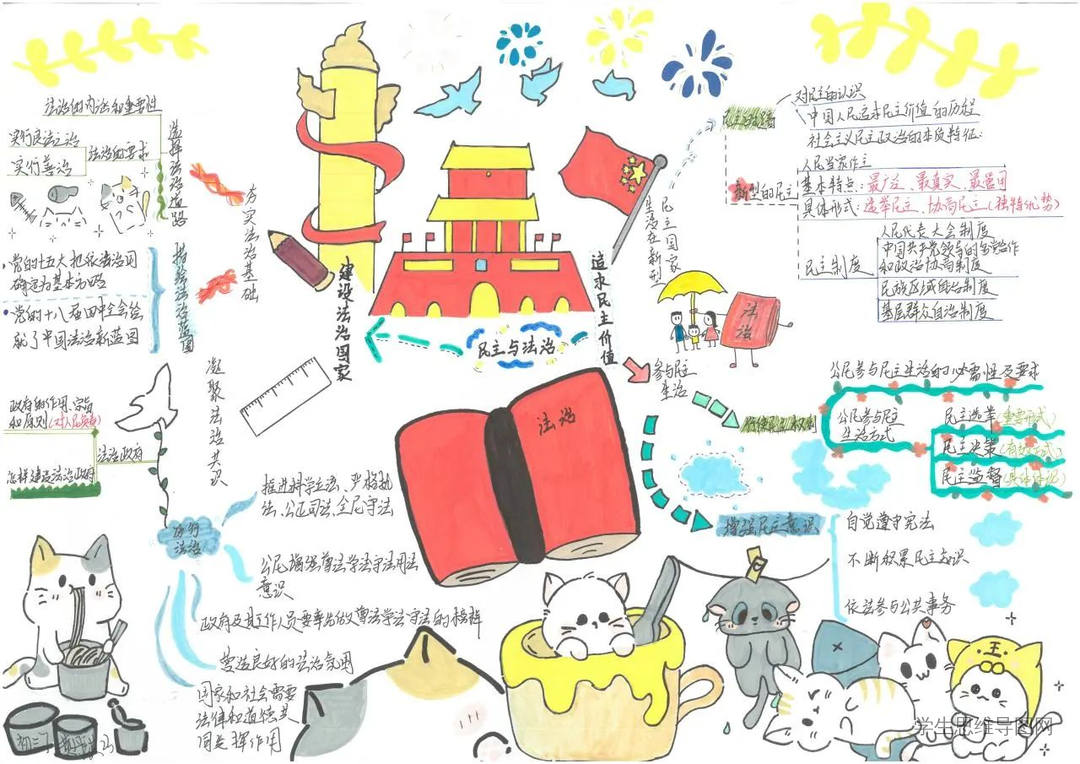 民主与法治
建设法治国家
夯实法治基础
选择法治道路
法治的内涵和重要性
法治的要求
实行良法之治
实行善治
描绘法治蓝图
党的十五大把依法治国
确定为基本方略
党的十八届四中全会绘
就了中国法治新蓝图
凝聚法治共识
法治政府
政府的作用、宗旨
和原则(对人民负责)
怎样建设法治政府
厉行
法治
推进科学立法、严格执
法、公正司法、全民守法
公民增强尊法学法守法用法
意识
政府及其工作人员要率先做尊法学法守法的榜样
营造良好的法治氛围
国家和社会需要
法律和道德共
同发挥作用
追求民主价值
生活在新型
民主国家
对民主的认识
中国人民追求民主价值的历程
社会主义民主政治的本质特征:
人民当家作主
新型的民主
基本特点:最广泛、最真实、最管用
具体形式:选举民主、协商民主(独特优势)
民主制度
人民代表大会制度
中国共产党领导的多党合作
和政治协商制度
民族区域自治制度
基层群众自治制度
法治
法治
参与民主
生活
行使民主权利
公民参与民主生活的必要性及要求
公民参与民主
生活方式
民主选举(重要形式)
民主决策
民主监督
增强民主意识
自觉遵守宪法
不断积累民主知识
依法参与公共事务
学生思维导图网